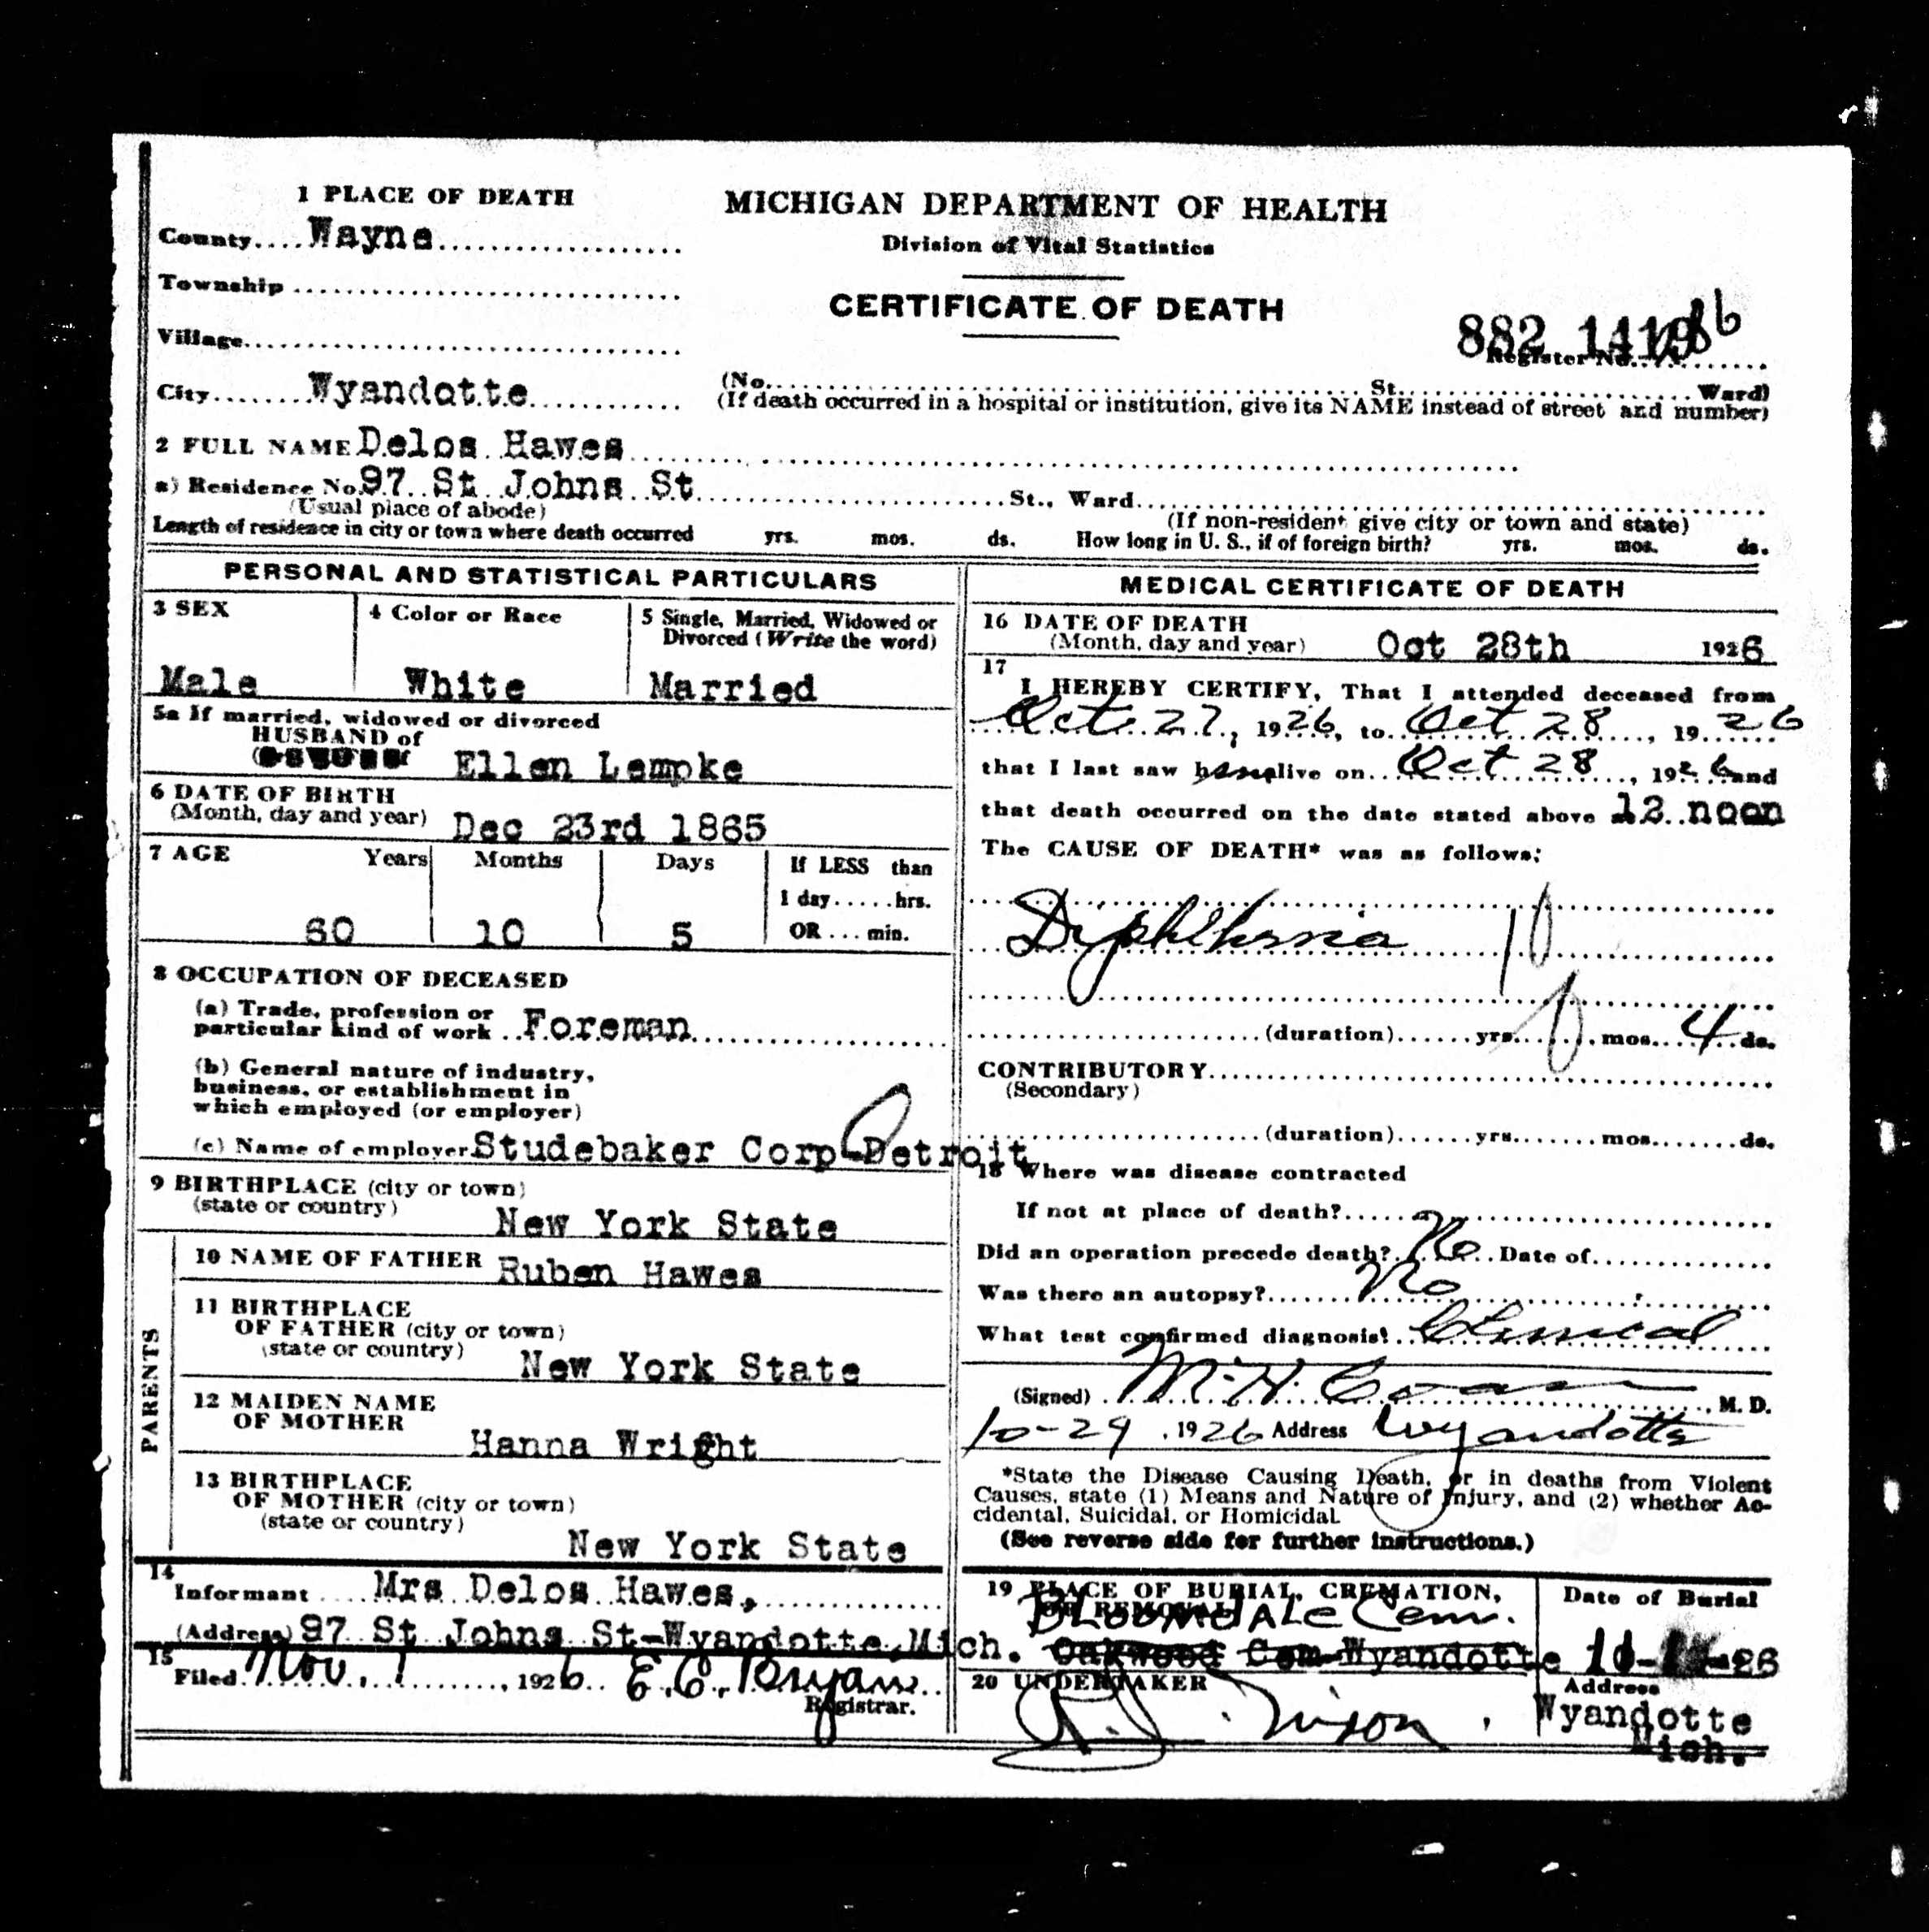 1 PLACE OF DEATH
County....Wayne
Township
Village
City......Wyandotte
MICHIGAN DEPARTMENT OF HEALTH
Division of Vital Statistics
CERTIFICATE OF DEATH
882
Register No.
(No. St. Ward)
(If death occurred in a hospital or institution, give its NAME instead of street and number)
2 FULL NAME Delos Hawes
a) Residence No. 97 St Johns St St., Ward
(Usual place of abode)
(If non-resident give city or town and state)
Length of residence in city or town where death occurred yrs. mos. ds. How long in U. S., if of foreign birth? yrs. mos. ds.
PERSONAL AND STATISTICAL PARTICULARS
3 SEX
Male
4 Color or Race
White
5 Single, Married, Widowed or
Divorced (Write the word)
Married
5a If married, widowed or divorced
HUSBAND of
Ellen Lempke
6 DATE OF BIRTH
(Month, day and year) Dec 23rd 1865
7 AGE Years Months Days If LESS than
1 day.....hrs.
60 10 5 OR...min.
8 OCCUPATION OF DECEASED
(a) Trade, profession or
particular kind of work Foreman
(b) General nature of industry,
business, or establishment in
which employed (or employer)
(c) Name of employer Studebaker Corp-Detroit
9 BIRTHPLACE (city or town)
(state or country) New York State
PARENTS
10 NAME OF FATHER Ruben Hawes
11 BIRTHPLACE
OF FATHER (city or town)
(state or country) New York State
12 MAIDEN NAME
OF MOTHER
Hanna Wright
13 BIRTHPLACE
OF MOTHER (city or town)
(state or country)
New York State
14
Informant Mrs Delos Hawes,
(Address) 97 St Johns St-Wyandotte, Mich.
15
Filed Nov. 1, 1926 E. C. Bryan
Registrar.
MEDICAL CERTIFICATE OF DEATH
16 DATE OF DEATH
(Month, day and year) Oct 28th 1926
17
I HEREBY CERTIFY, That I attended deceased from
Oct. 27, 1926, to Oct 28, 1926
that I last saw him alive on Oct 28, 1926 and
that death occurred on the date stated above 12 noon
The CAUSE OF DEATH* was as follows:
Diphtheria 10
(duration) yrs. mos. 4 ds.
CONTRIBUTORY
(Secondary)
(duration) yrs. mos. ds.
18 Where was disease contracted
If not at place of death?
Did an operation precede death? No Date of
Was there an autopsy? No
What test confirmed diagnosis? Clinical
(Signed) M. H. M. D.
10-29, 1926 Address Wyandotte
*State the Disease Causing Death, or in deaths from Violent
Causes, state (1) Means and Nature of Injury, and (2) whether Ac-
cidental, Suicidal, or Homicidal.
(See reverse side for further instructions.)
19 PLACE OF BURIAL, CREMATION,
OR REMOVAL
BLOOMDALE Cem.
Oakwood Cem-Wyandotte
Date of Burial
20 UNDERTAKER
Nixon
Address
Wyandotte
Mich.